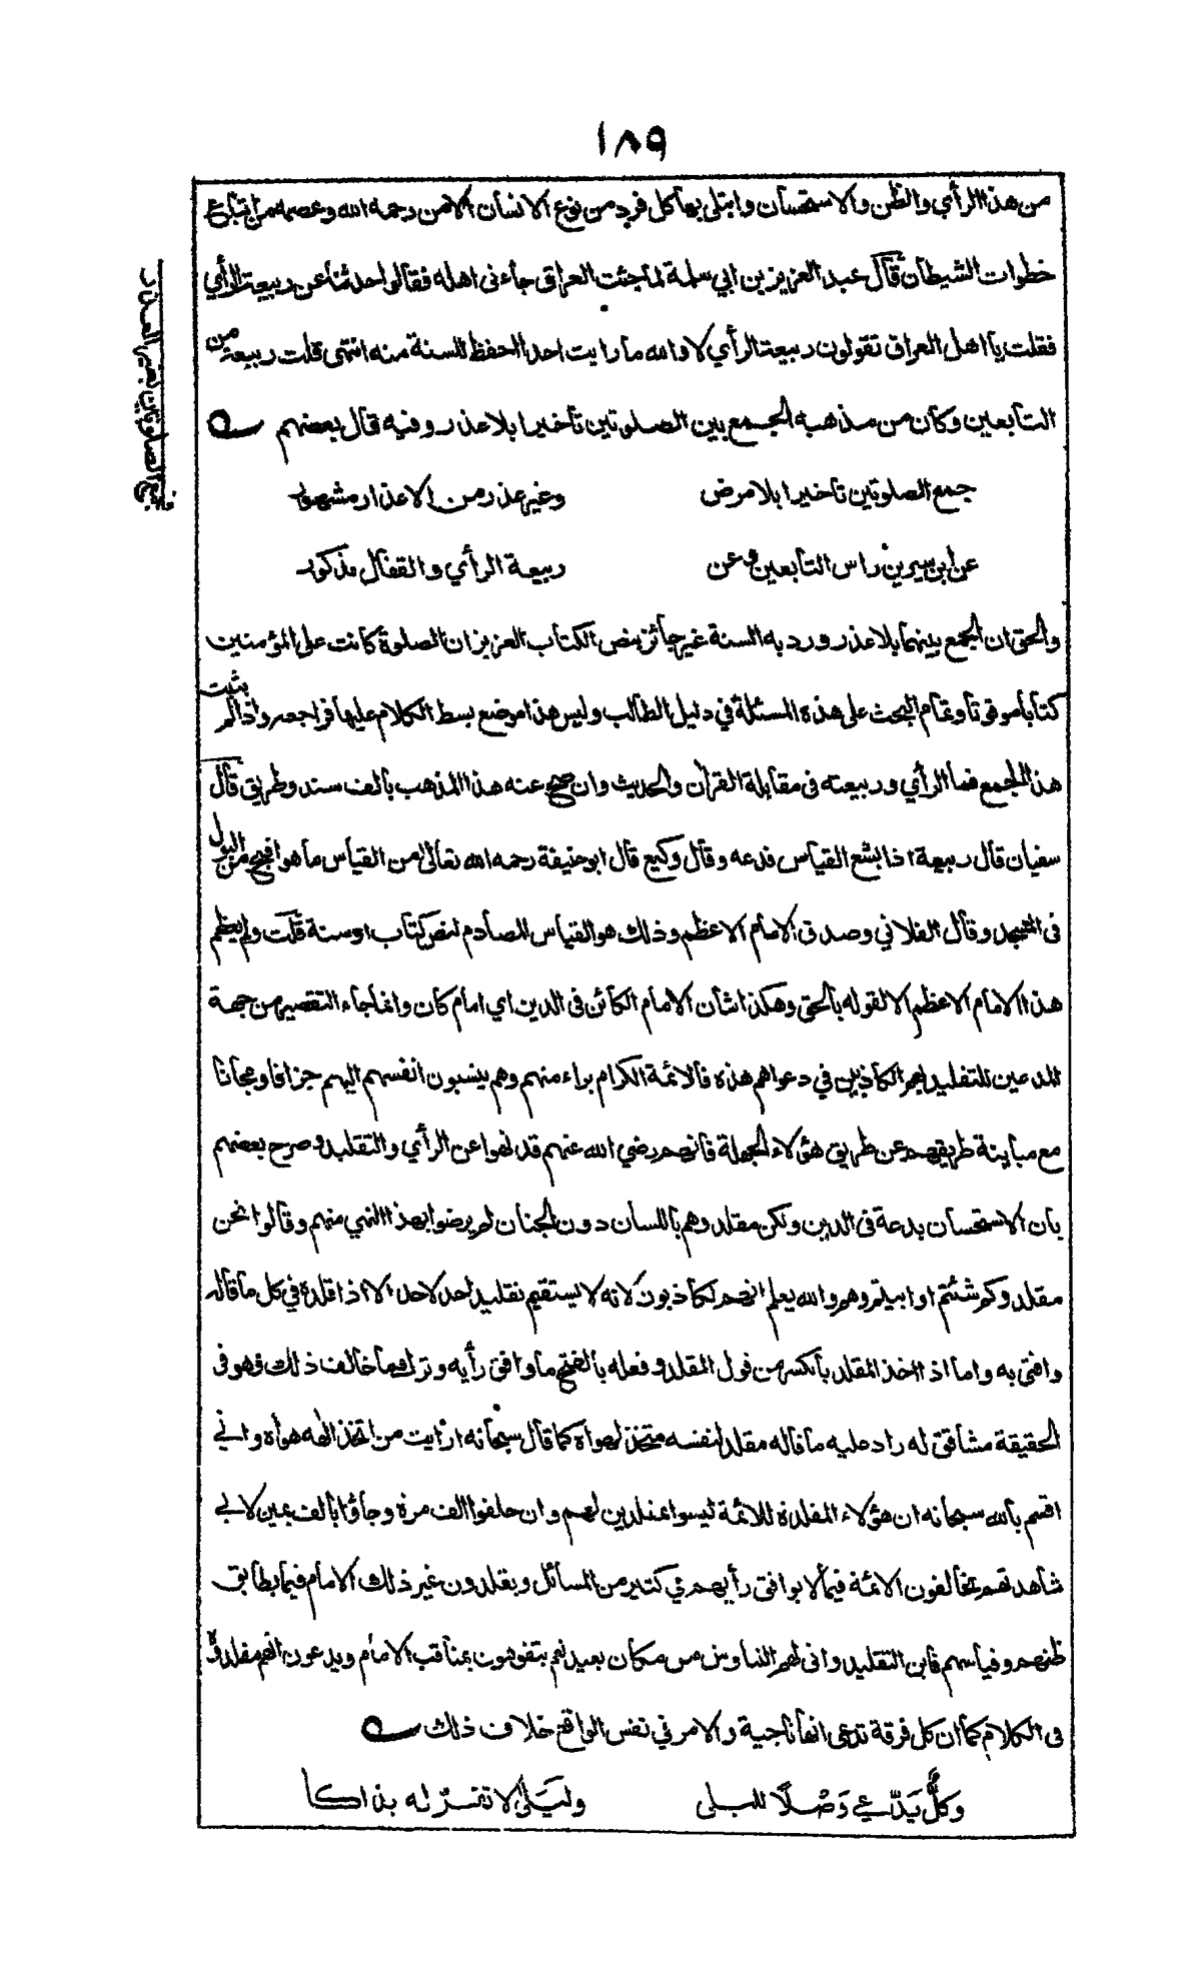 ١٨٩
من هذا الرأي والظن والاستحسان وابتلى بها كل فرد من نوع الانسان الا من رحمه الله وعصمه من اتباع
خطوات الشيطان قال عبد العزيز بن ابي سلمة لما جئت العراق جاءني اهله فقالوا حدثنا عن ربيعة الرأي
فقلت يا اهل العراق تقولون ربيعة الرأي لا والله ما رايت احدا احفظ للسنة منه انتهى قلت ربيعة من
التابعين وكان من مذهبه الجمع بين الصلوتين تأخيرا بلا عذر وفيه قال بعضهم
جمع الصلوتين تاخيرا بلا مرض وغير عذر من الاعذار مشهور
عن ابن سيرين راس التابعين وعن ربيعة الرأي والقفال مذكور
والحق ان الجمع بينهما بلا عذر ورد به السنة غير جائز بنص الكتاب العزيز ان الصلوة كانت على المؤمنين
كتابا موقوتا وتمام البحث على هذه المسئلة في دليل الطالب وليس هذا موضع بسط الكلام عليها فراجعه واذا لم يثبت
هذا الجمع فما الرأي وربيعته في مقابلة القرآن والحديث وان صح عنه هذا المذهب بألف سند وطريق قال
سفيان قال ربيعة اذا بشع القياس فدعه وقال وكيع قال ابو حنيفة رحمه الله تعالى من القياس ما هو اقبح من البول
في المسجد وقال الفلاني وصدق الامام الاعظم وذلك هو القياس المصادم لنص كتاب او سنة قلت ولم يعظم
هذا الامام الاعظم الا لقوله بالحق وهكذا شأن الامام الكائن في الدين اي امام كان وانما جاء التقصير من جهة
المدعين للتقليد لهم الكاذبين في دعواهم هذه فالائمة الكرام براء منهم وهم ينسبون انفسهم اليهم جزافا ومجانا
مع مباينة طريقهم عن طريق هؤلاء الجهلة فانهم رضي الله عنهم قد نهوا عن الرأي والتقليد وصرح بعضهم
بان الاستحسان بدعة في الدين ولكن مقلدوهم باللسان دون الجنان لم يرضوا بهذا النهي منهم وقالوا نحن
مقلدوكم شئتم او ابيتم وهم والله يعلم انهم لكاذبون لانه لا يستقيم تقليد احد لاحد الا اذا قلده في كل ما قاله
وافتى به واما اذا اخذ المقلد بالكسر من قول المقلد وفعله بالفتح ما وافق رأيه وترك ما خالف ذلك فهو في
الحقيقة مشاقق له راد عليه ما قاله مقلد لنفسه متخذ لهواه كما قال سبحانه ارأيت من اتخذ الهه هواه واني
اقسم بالله سبحانه ان هؤلاء المقلدة للائمة ليسوا بمقلدين لهم وان حلفوا الف مرة وجاؤا بألف يمين لاني
شاهدتهم يخالفون الائمة فيما لا يوافق رأيهم في كثير من المسائل ويقلدون غير ذلك الامام فيما يطابق
ظنهم وقياسهم فاين التقليد وانى لهم التناوش من مكان بعيد نعم يتفوهون بمناقب الامام ويدعون انهم مقلدوه
في الكلام كما ان كل فرقة تدعى انها ناجية والامر في نفس الواقع خلاف ذلك
وَكُلٌّ يَدَّعِي وَصْلًا لليلى وليلى لا تقر له بذاكا
ف جمع الصلوتين بغير العذر